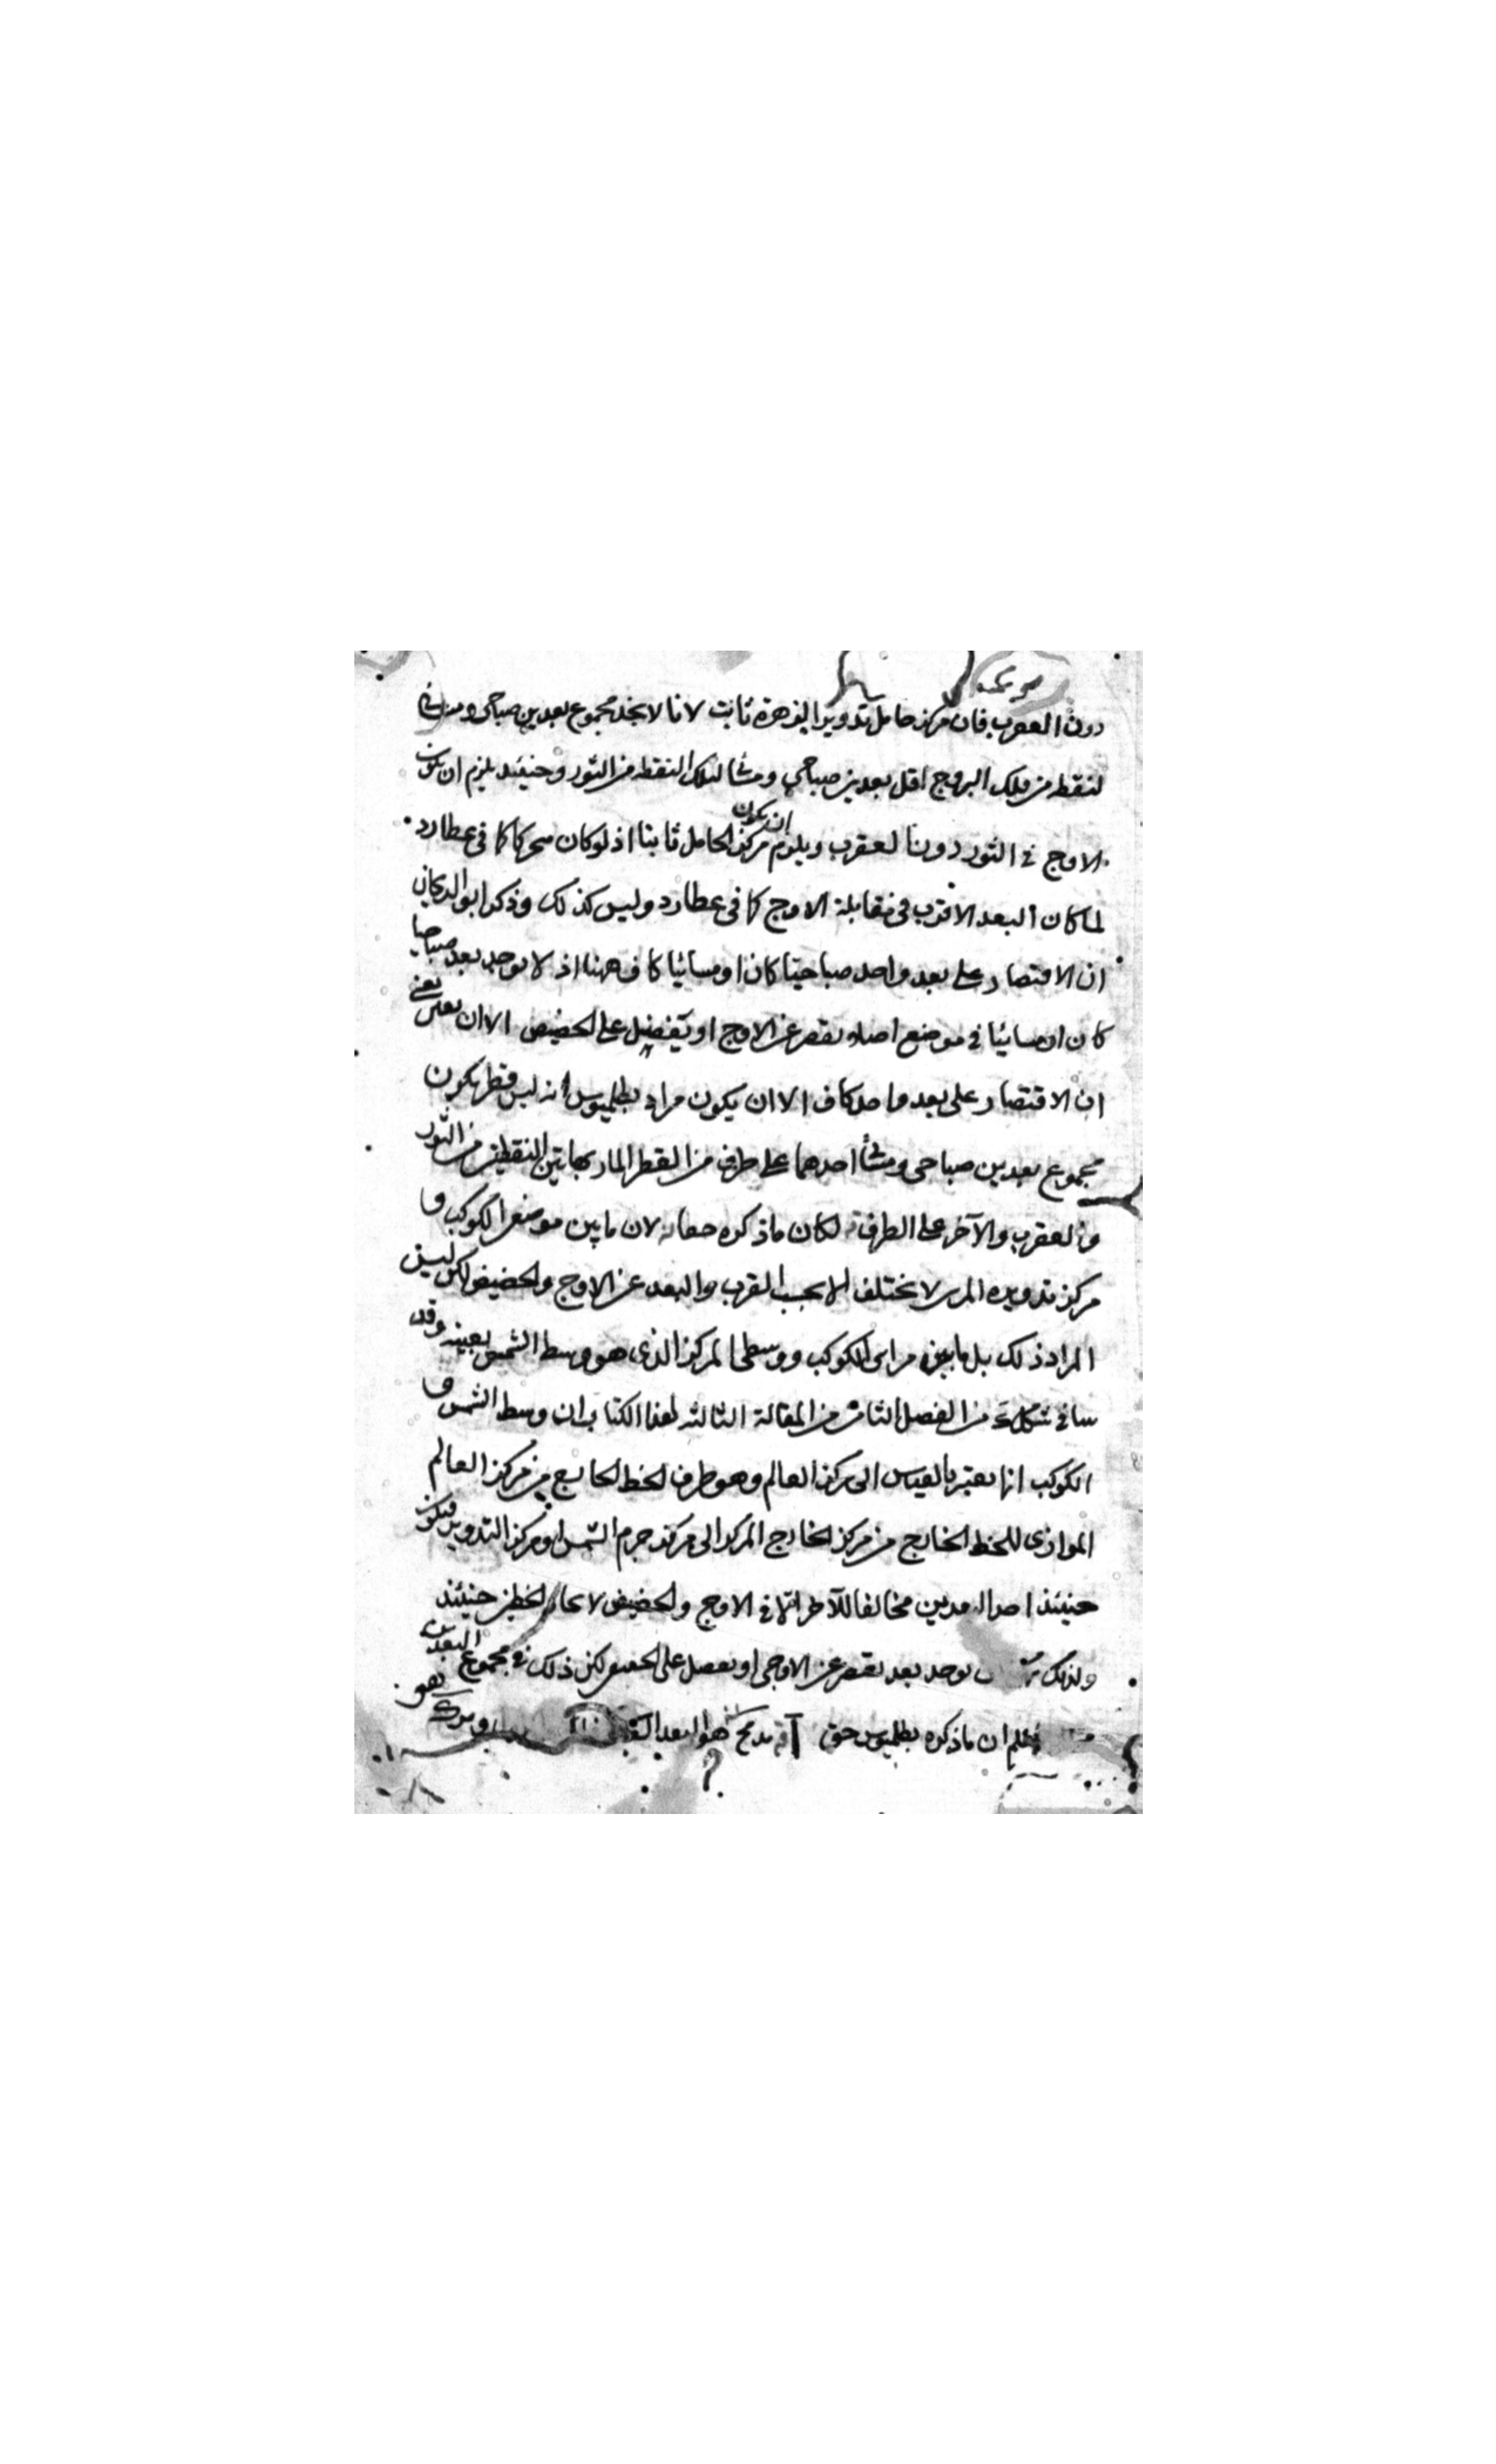 دون العقرب فان مركز حامل تدوير الزهرة ثابت لانا لا نجد مجموع بعدين صباحي ومسائي
لنقطه من فلك البروج اقل بعدين صباحي ومسا لتلك النقطه من الثور وحينئذ يلزم ان يكون
الاوج في الثور دون العقرب ويلزم ان يكون مركز الحامل ثابتا اذ لو كان متحركا كما في عطارد
لما كان البعد الاقرب في مقابلة الاوج كما في عطارد وليس كذلك وذكر ابو الريحان
ان الاقتصار على بعد واحد صباحيا كان او مسائيا كاف ههنا اذ لا يوجد بعد صباحيا
كان او مسائيا في موضع اصلا ينقص عن الاوج او يفضل على الحضيض الا ان يعني
ان الاقتصار على بعد واحد كاف الا ان يكون مراد بطلميوس انه ليس قطر يكون
مجموع بعدين صباحي ومسا احدهما على طرف من القطر المار بهاتين النقطتين من الثور
والعقرب والآخر على الطرف لكان ما ذكره حقا لان ما بين موضع الكوكب و
مركز تدويره المر لا يختلف الا بحسب القرب والبعد عن الاوج والحضيض لكن ليس
المراد ذلك بل ما بين مراى الكوكب ووسطى المركز الذى هو وسط الشمس بعينه وقد
من الفصل الثالث من المقالة الثالثه لهذا الكتاب ان وسط الشمس و
الكوكب انما يعتبر بالقياس الى مركز العالم وهو طرف الخط الخارج من مركز العالم
الموازى للخط الخارج من مركز الخارج المركز الى مركز جرم الشمس او مركز التدوير فيكون
حينئذ احد البعدين مخالفا للآخر الا في الاوج والحضيض لا الخطين حينئذ
ولذلك يوجد بعد ينقص عن الاوجى او يفضل على الحضيضى لكن ذلك في مجموع البعدين
فعلم ان ما ذكره بطلميوس حق هو البعد فهو